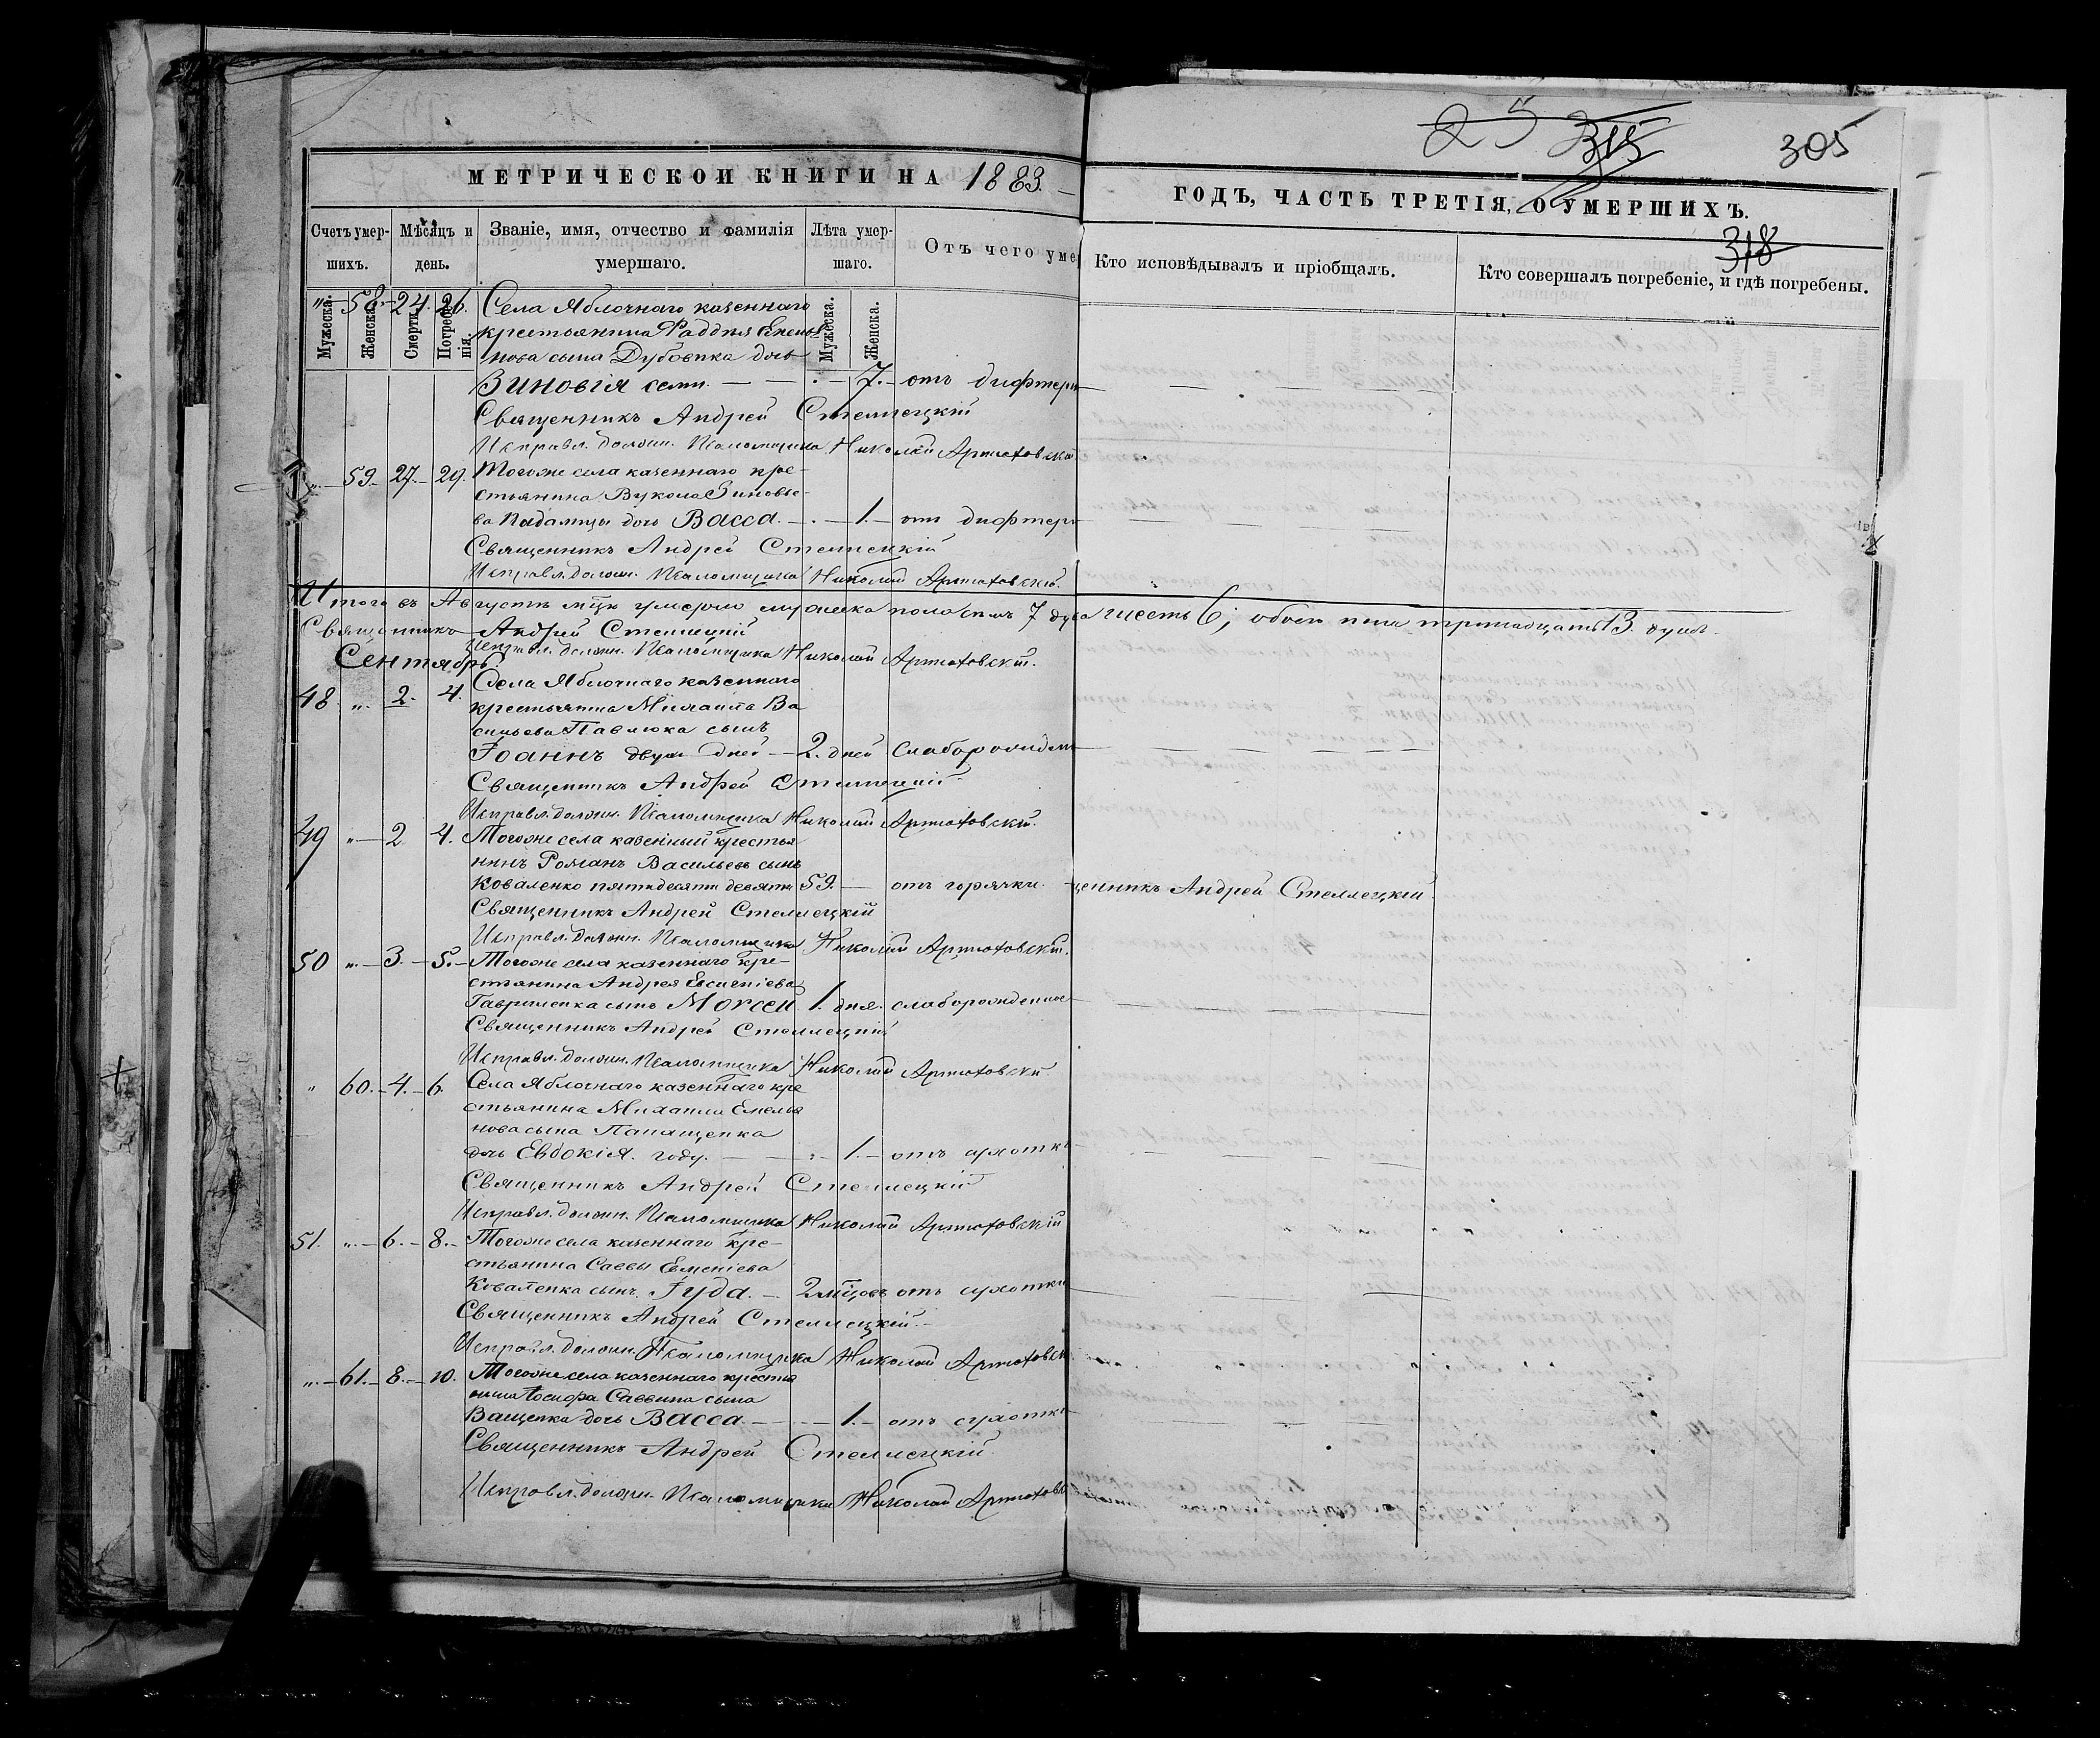 25 315 305
МЕТРИЧЕСКОЙ КНИГИ НА 1883 ГОДЪ, ЧАСТЬ ТРЕТІЯ, О УМЕРШИХЪ.
318
Счетъ умер-шихъ. Мѣсяцъ и день. Званіе, имя, отчество и фамилія умершаго. Лѣта умер-шаго. Отъ чего уме Кто исповѣдывалъ и пріобщалъ. Кто совершалъ погребеніе, и гдѣ погребены.
Мужеска. Женска. Смерти. Погребе-нія. Мужеска. Женска.
" 58. 24. 26. Села Яблочнаго казеннаго
крестьянина Фаддея Емелья
нова сына Дубовика дочь
Зиновія семи. — 7. — отъ дифтери
Священникъ Андрей Стеллецкій
Исправл. должн. Псаломщика Николай Артюховскій
" 59. 27. 29. Тогоже села казеннаго кре-
стьянина Вукола Зиновье-
ва дочь Васса. — 1. — отъ дифтери
Священникъ Андрей Стеллецкій
Исправл. должн. Псаломщика Николай Артюховскій.
Итого въ Августѣ мцѣ умерло мужеска пола 7 шесть 6; обоего пола тринадцать 13 душъ.
Священникъ Андрей Стеллецкій
Исправл. должн. Псаломщика Николай Артюховскій.
Сентябрь
48. " 2. 4. Села Яблочнаго казеннаго
крестьянина Михаила Ва
сильева Павлюка сынъ
Іоаннъ двухъ дней — 2. дней слаборожден
Священникъ Андрей Стеллецкій
Исправл. должн. Псаломщика Николай Артюховскій.
49 " 2 4. Тогоже села казенный крестья
нинъ Романъ Васильевъ сынъ
Коваленко пятидесяти девяти 59. — отъ горячки. щенникъ Андрей Стеллецкій.
Священникъ Андрей Стеллецкій
Исправл. должн. Псаломщика Николай Артюховскій.
50 " 3. 5. Тогоже села казеннаго кре-
стьянина Андрея Евсигніева
Гавриленка сынъ Моѵсей 1. дня. слаборожденное
Священникъ Андрей Стеллецкій
Исправл. должн. Псаломщика Николай Артюховскій
" 60. 4. 6. Села Яблочнаго казеннаго кре
стьянина Михаила Емелья
нова сына Панащенка
дочь Евдокія. году. — 1. — отъ сухотки
Священникъ Андрей Стеллецкій
Исправл. должн. Псаломщика Николай Артюховскій
51. " 6. 8. Тогоже села казеннаго кре-
стьянина Саввы Евменіева
Коваленка сынъ Іуда. — 2 мцовъ отъ сухотки
Священникъ Андрей Стеллецкій.
Исправл. должн. Псаломщика Николай Артюховск
" 61. 8. 10. Тогоже села казеннаго крестья
нина Іосифа Саввина сына
Ващенка дочь Васса. — 1. — отъ сухотки
Священникъ Андрей Стеллецкій.
Исправл. должн. Псаломщика Николай Артюховск